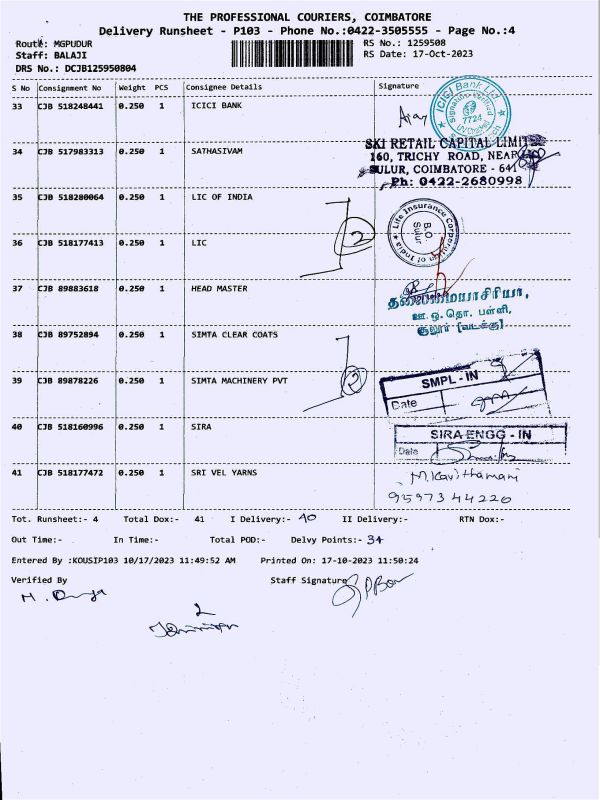 THE PROFESSIONAL COURIERS, COIMBATORE
Delivery Runsheet - P103 - Phone No.:0422-3505555 - Page No.:4
Route: MGPUDUR
RS No.: 1259508
Staff: BALAJI
RS Date: 17-Oct-2023
DRS No.: DCJB125950804
S No Consignment No Weight PCS Consignee Details Signature
33 CJB 518248441 0.250 1 ICICI BANK
ICICI Bank Ltd
7724
34 CJB 517983313 0.250 1 SATHASIVAM
SKI RETAIL CAPITAL LIMITED
160, TRICHY ROAD, NEAR
SULUR, COIMBATORE - 641
Ph: 0422-2680998
35 CJB 518280064 0.250 1 LIC OF INDIA
Life Insurance Corporation of India
B.O.
Sulur
2
36 CJB 518177413 0.250 1 LIC
37 CJB 89883618 0.250 1 HEAD MASTER
தலைமையாசிரியர்,
ஊ.ஒ.தொ. பள்ளி,
சூலூர் [வடக்கு]
38 CJB 89752894 0.250 1 SIMTA CLEAR COATS
2
39 CJB 89878226 0.250 1 SIMTA MACHINERY PVT
SMPL - IN
Date
40 CJB 518160996 0.250 1 SIRA
SIRA ENGG - IN
Date
41 CJB 518177472 0.250 1 SRI VEL YARNS
M.Kavithamani
9597344226
Tot. Runsheet:- 4 Total Dox:- 41 I Delivery:- 40 II Delivery:- RTN Dox:-
Out Time:- In Time:- Total POD:- Delvy Points:- 34
Entered By :KOUSIP103 10/17/2023 11:49:52 AM Printed On: 17-10-2023 11:50:24
Verified By Staff Signature